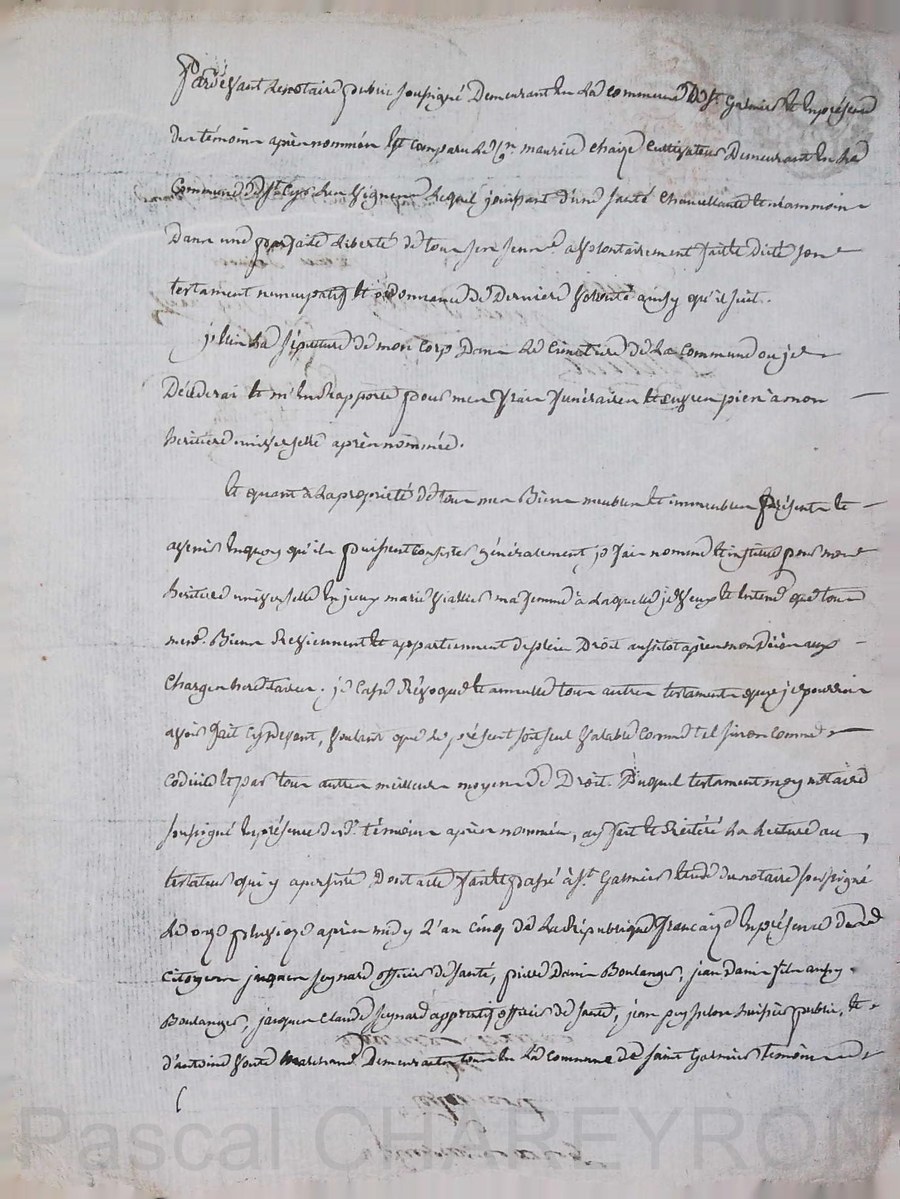 Pardevant le notaire public soussigné demeurant en la commune de St. Galmier et en présence
des témoins après nommés est comparu le Cn. maurice chaize cultivateur demeurant en la
commune de St. Cyr les vignes lequel jouissant d'une santé chancellante et néammoins
dans une parfaite liberté de tous ses sens a volontairement fait et dicté son
testament nuncupatif et ordonnance de dernière volonté ainsy qu'il suit.
j'élis la sépulture de mon corp dans le cimetière de la commune ou je
décéderai et m'en rapporte pour mes frais funéraires et œuvres pies à mon
héritière universelle après nommée.
et quant à la propriété de tous mes biens meubles et immeubles présents et
avenir en quoy qu'ils puissent consister généralement je fais nomme et institue pour mon
héritière universelle en jceux marie viallier ma femme à laquelle je veux et entend que tous
mesd. biens reviennent et appartiennent de plein droit aussitot après mon décès aux
charges héréditaires. je casse révoque et annulle tous autres testaments que je pourrois
avoir fait cy devant, voulant que le présent soit seul valable comme tel sinon comme
codicile et par tous autres meilleurs moyens de droit. Duquel testament moy notaire
soussigné en présence desd. témoins après nommés, ay fait et réitéré la lecture au
testateur qui y a persisté dont acte fait et passé à St. Galmier étude du notaire soussigné
le onze pluviose après midy l'an cinq de la république française en présence de
citoyens jacques seynard officier de santé, pierre Danis Boulanger, jean Danis fils aussy
Boulanger, jacques claude seynard apprentif officier de santé, jean puy huissier public, et
d'antoine marchand demeurants tous en la commune de saint Galmier témoins
Pascal CHAREYRON